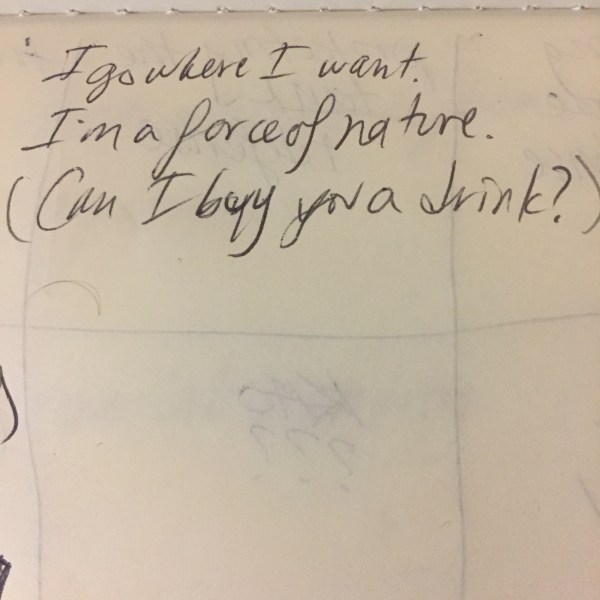 I go where I want.
I'm a force of nature.
(Can I buy you a drink?)